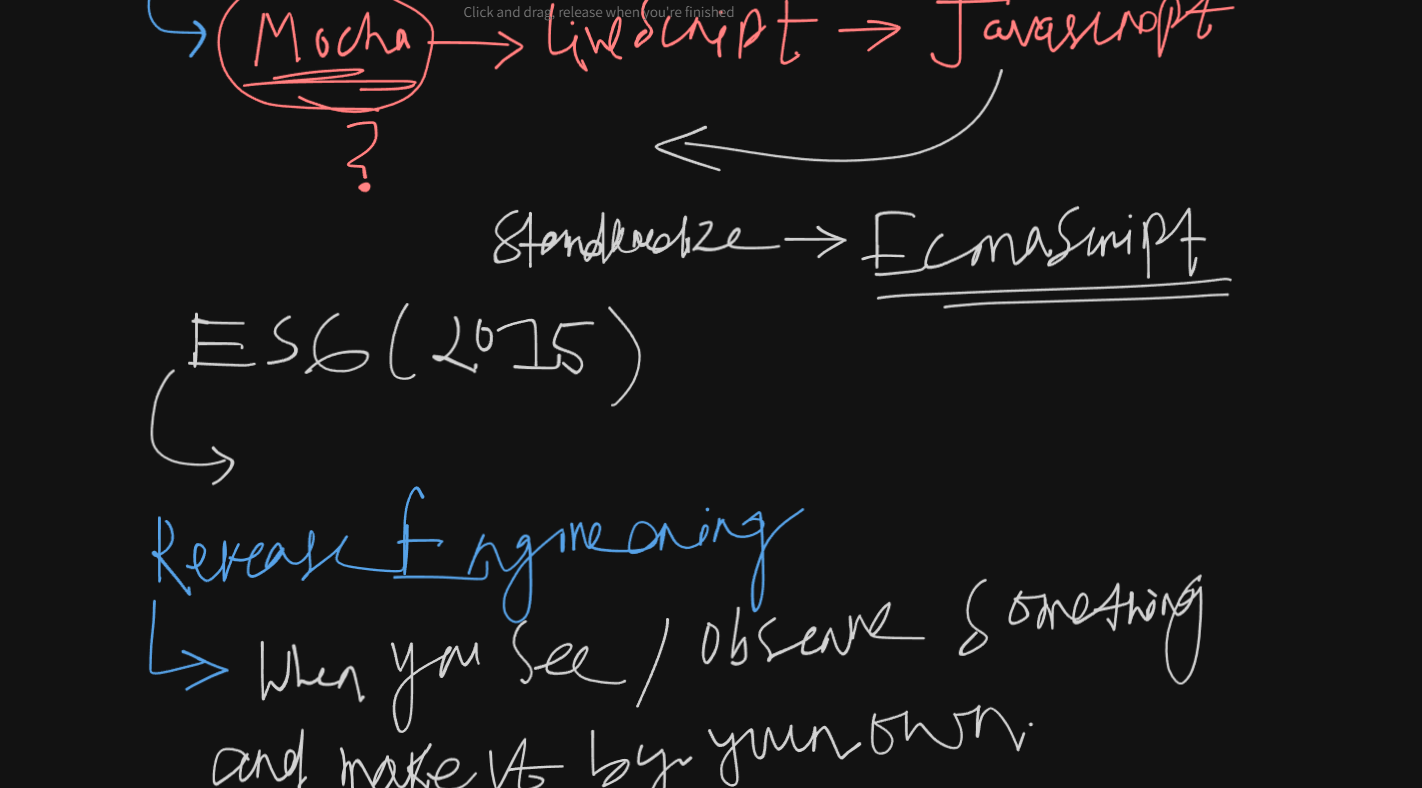 Click and drag, release when you're finished
Mocha → LiveScript → Javascript
?
Standerdize → EcmaScript
ES6 (2015)
Reverse Engineering
When you see / observe something
and make it by your own.